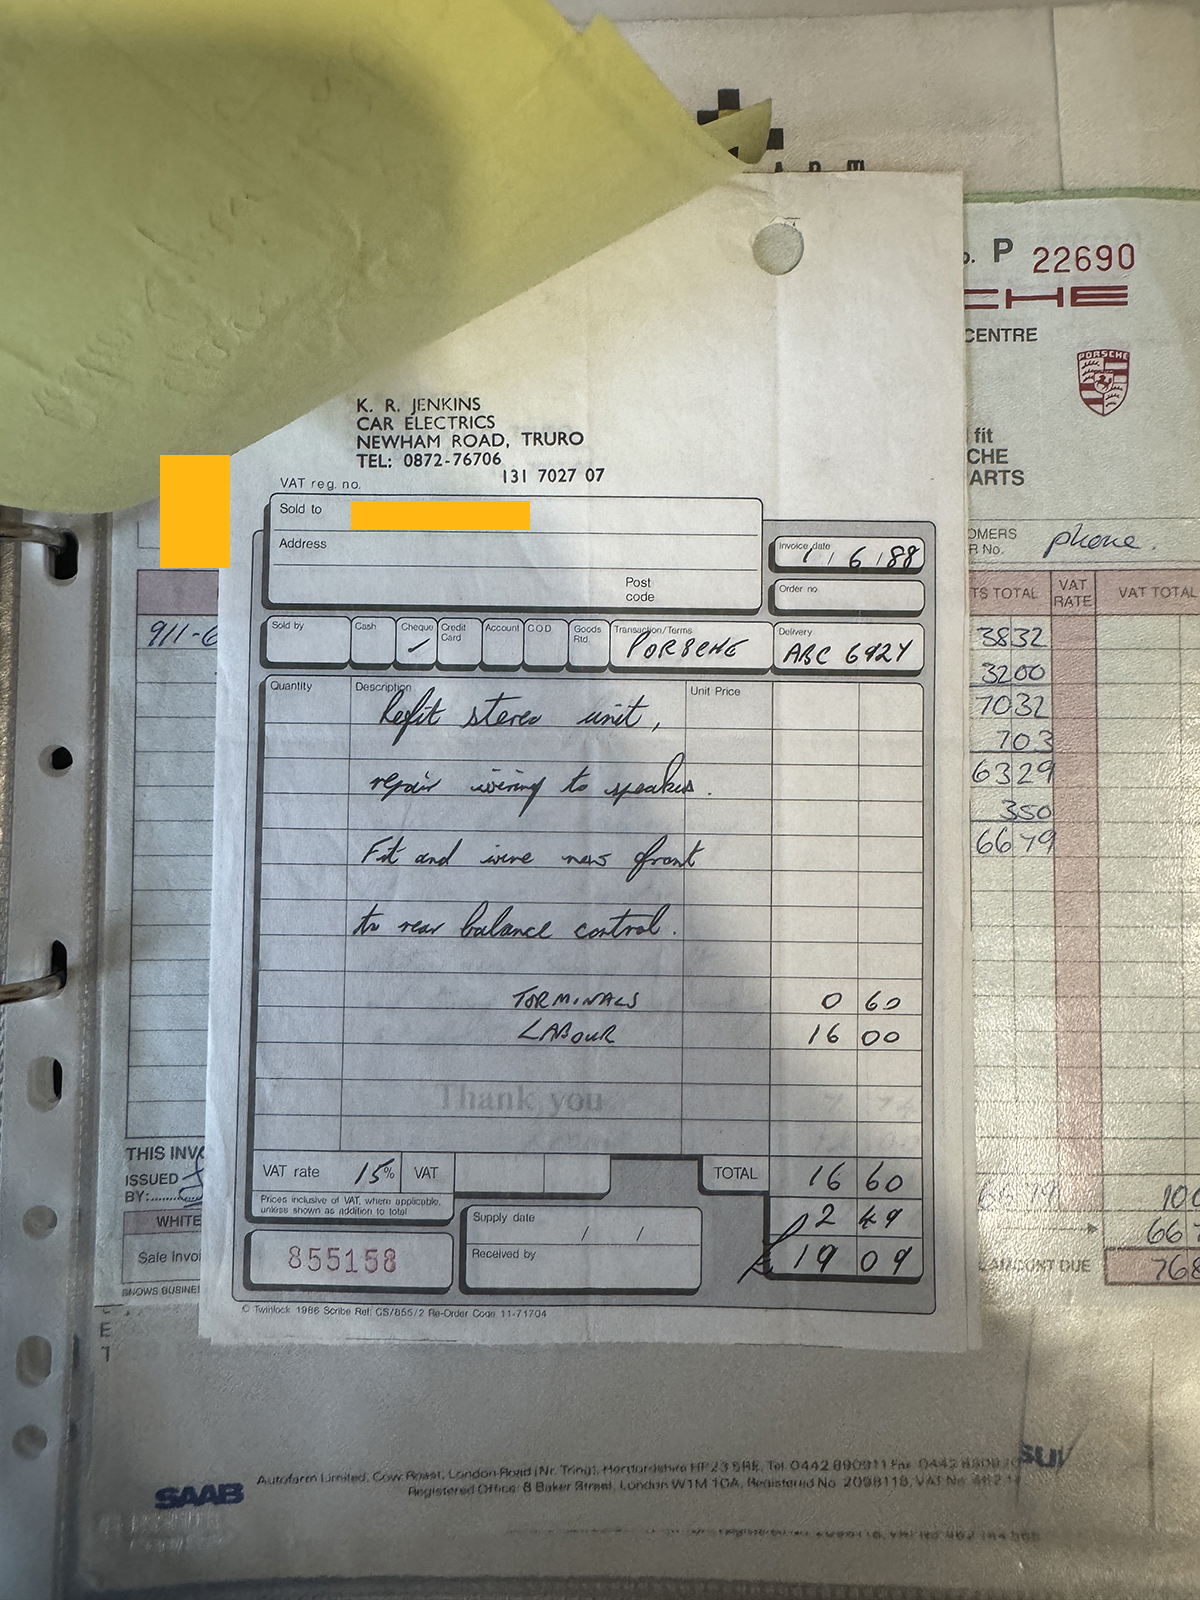 ARM
P 22690
CHE
CENTRE
fit
CHE
ARTS
OMERS
R No. phone.
K. R. JENKINS
CAR ELECTRICS
NEWHAM ROAD, TRURO
TEL: 0872-76706
131 7027 07
VAT reg. no.
Sold to
Address
Post
code
Invoice date 1/6/88
Order no
Sold by
Cash
Cheque ✓
Credit
Card
Account
C O D
Goods
Rtd.
Transaction/Terms
PORSCHE
Delivery
ABC 692Y
Quantity
Description
Unit Price
Refit stereo unit,
repair wiring to speakers.
Fit and wire new front
to rear balance control.
TORMINALS 0 60
LABOUR 16 00
Thank you
VAT rate 15% VAT
TOTAL 16 60
2 49
£ 19 09
Prices inclusive of VAT, where applicable,
unless shown as addition to total
855158
Supply date / /
Received by
© Twinlock 1986 Scribe Ref: CS/855/2 Re-Order Code 11-71704
911-6
TS TOTAL
VAT
RATE
VAT TOTAL
3832
3200
7032
703
6329
350
6679
100
667
AMOUNT DUE 768
THIS INVO
ISSUED
BY:
WHITE
Sale invoi
SNOWS BUSINE
E
T
PORSCHE
SAAB
Autofarm Limited, Cow Roast, London Road (Nr. Tring), Hertfordshire HP23 5RE. Tel 0442 890911 Fax 0442
Registered Office: 8 Baker Street, London W1M 1DA, Registered No. 2098118, VAT No.